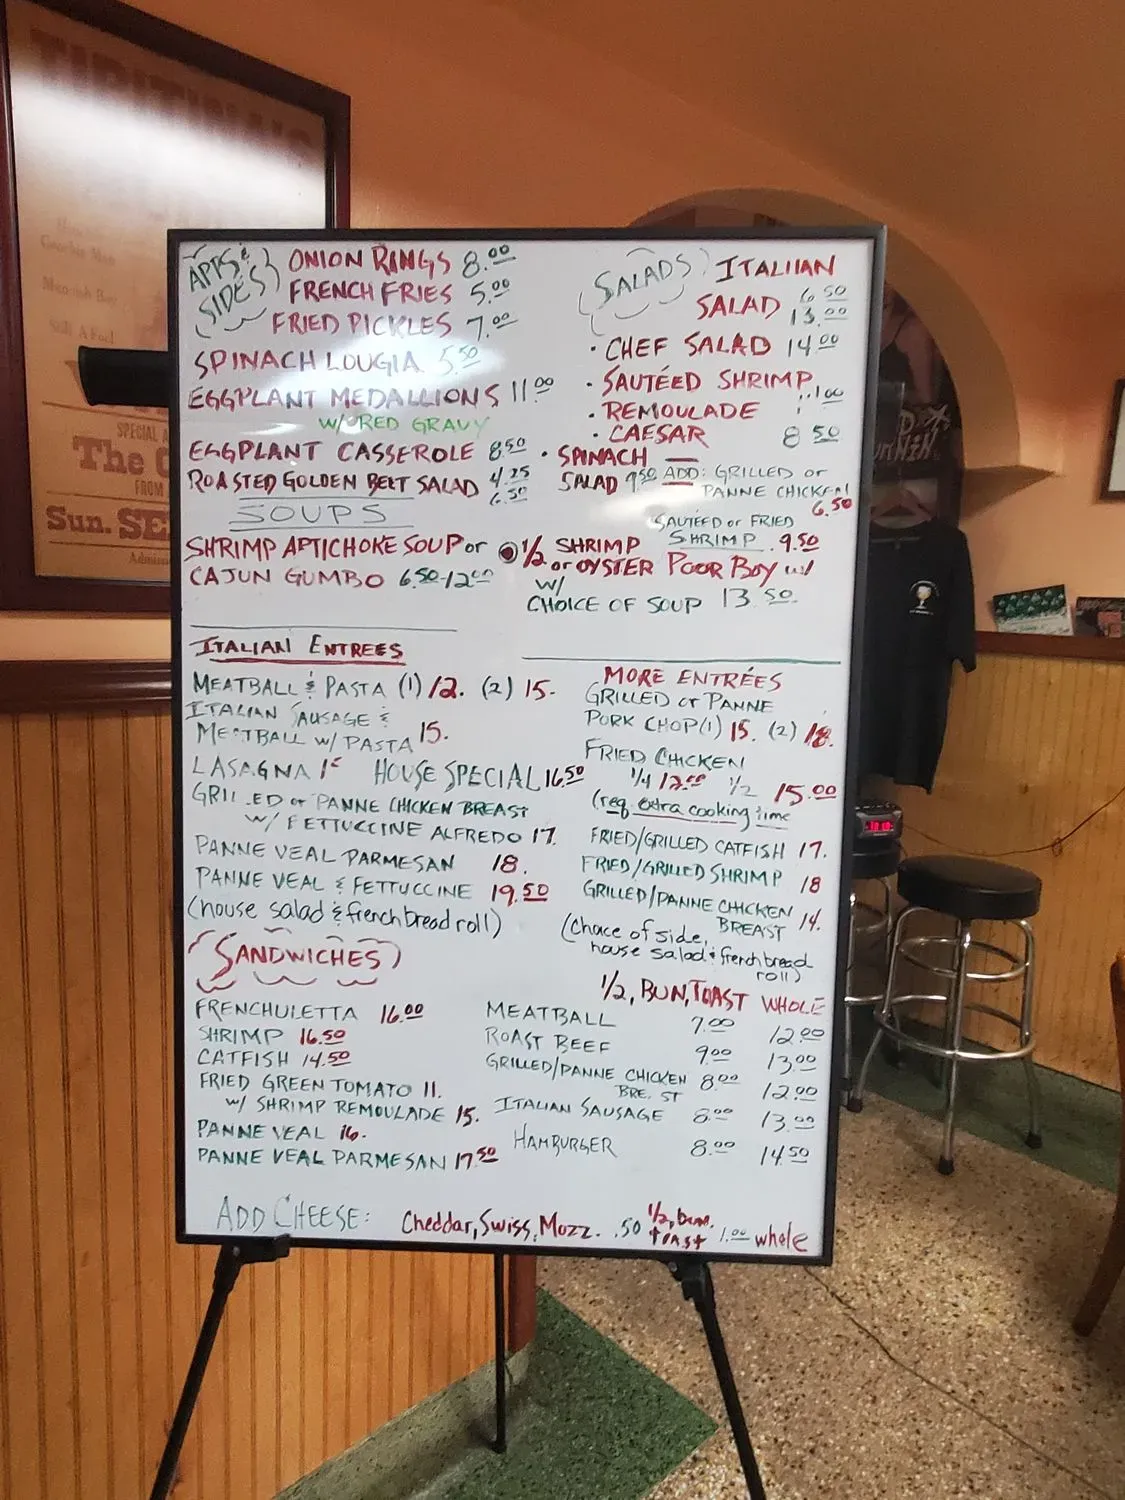 TIPITINA'S
SPECIAL
The
FROM
Sun.
APPS &
SIDES
ONION RINGS 8.00
FRENCH FRIES 5.00
FRIED PICKLES 7.00
SPINACH LOUGIA 5.50
EGGPLANT MEDALLIONS 11.00
W/ RED GRAVY
EGGPLANT CASSEROLE 8.50
ROASTED GOLDEN BELT SALAD 4.25
6.50
SOUPS
SHRIMP ARTICHOKE SOUP or
CAJUN GUMBO 6.50-12.00
SALADS
ITALIIAN
SALAD 6.50
13.00
· CHEF SALAD 14.00
· SAUTÉED SHRIMP
· REMOULADE
· CAESAR 8.50
· SPINACH
SALAD 9.50 ADD: GRILLED or
PANNE CHICKEN
6.50
SAUTÉED or FRIED
SHRIMP 9.50
1/2 SHRIMP
or OYSTER POOR BOY w/
W/
CHOICE OF SOUP 13.50
ITALIAN ENTREES
MEATBALL & PASTA (1) 12. (2) 15-
ITALIAN SAUSAGE &
MEATBALL W/ PASTA 15.
LASAGNA HOUSE SPECIAL 16.50
GRILLED or PANNE CHICKEN BREAST
W/ FETTUCCINE ALFREDO 17.
PANNE VEAL PARMESAN 18.
PANNE VEAL & FETTUCCINE 19.50
(house salad & french bread roll)
MORE ENTRÉES
GRILLED or PANNE
PORK CHOP (1) 15. (2) 18.
FRIED CHICKEN
1/4 12.00 1/2 15.00
(req. extra cooking time
FRIED/GRILLED CATFISH 17.
FRIED/GRILLED SHRIMP 18
GRILLED/PANNE CHICKEN
BREAST 14.
(Choice of side,
house salad & french bread
roll)
SANDWICHES
FRENCHULETTA 16.00
SHRIMP 16.50
CATFISH 14.50
FRIED GREEN TOMATO 11.
W/ SHRIMP REMOULADE 15.
PANNE VEAL 16.
PANNE VEAL PARMESAN 17.50
1/2, BUN, TOAST WHOLE
MEATBALL 7.00 12.00
ROAST BEEF 9.00 13.00
GRILLED/PANNE CHICKEN 8.00 12.00
BRE ST
ITALIAN SAUSAGE 8.00 13.00
HAMBURGER 8.00 14.50
ADD CHEESE: Cheddar, Swiss, Mozz. .50 1/2, bun,
toast 1.00 whole